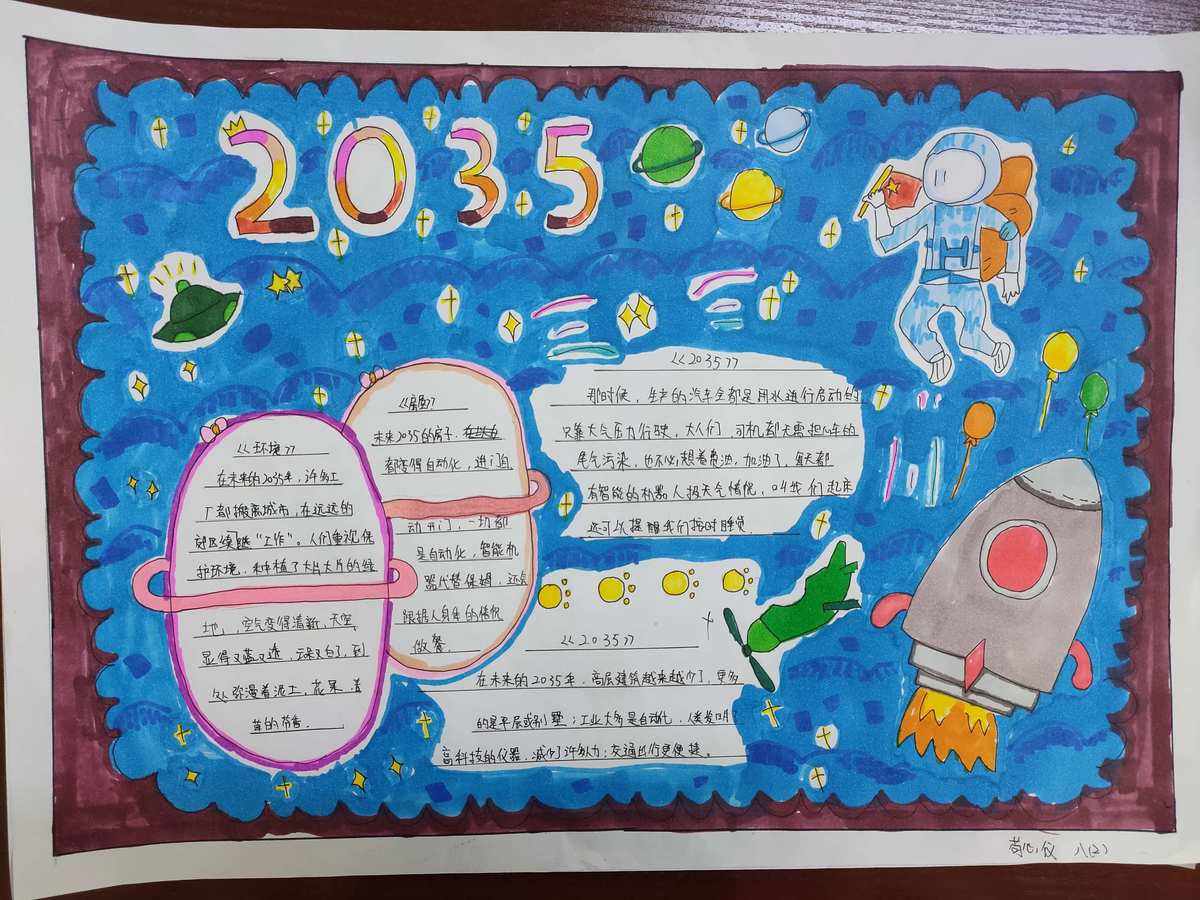 2035
<<环境>>
在未来的2035年，许多工
厂都搬离城市，在远远的
郊区续"工作"。人们重视保
护环境，种植了大片大片的绿
地，空气变得清新，天空
显得又蓝又透，云朵又白了，到
处弥漫着泥土，花果，青
草的芳香．
<<房屋>>
未来2035的房子．
都变得自动化，进门自
动开门，一切都
是自动化，智能机
器代替保姆，还会
跟据人身体的情况
做餐．
<<2035>>
那时候，生产的汽车全都是用水进行启动的
只靠大气压力行驶，大人们，司机都无需担心车的
尾气污染，也不必想着费油，加油了，每天都
有智能的机器人报天气情况，叫我们起床
还可以提醒我们按时睡觉
<<2035>>
在未来的2035年．高层建筑越来越少了，更多
的是平层或别墅；工业大多是自动化，人类发明了
高科技的仪器，减少了许多人力；交通出行更便捷。
心仪 八(2)